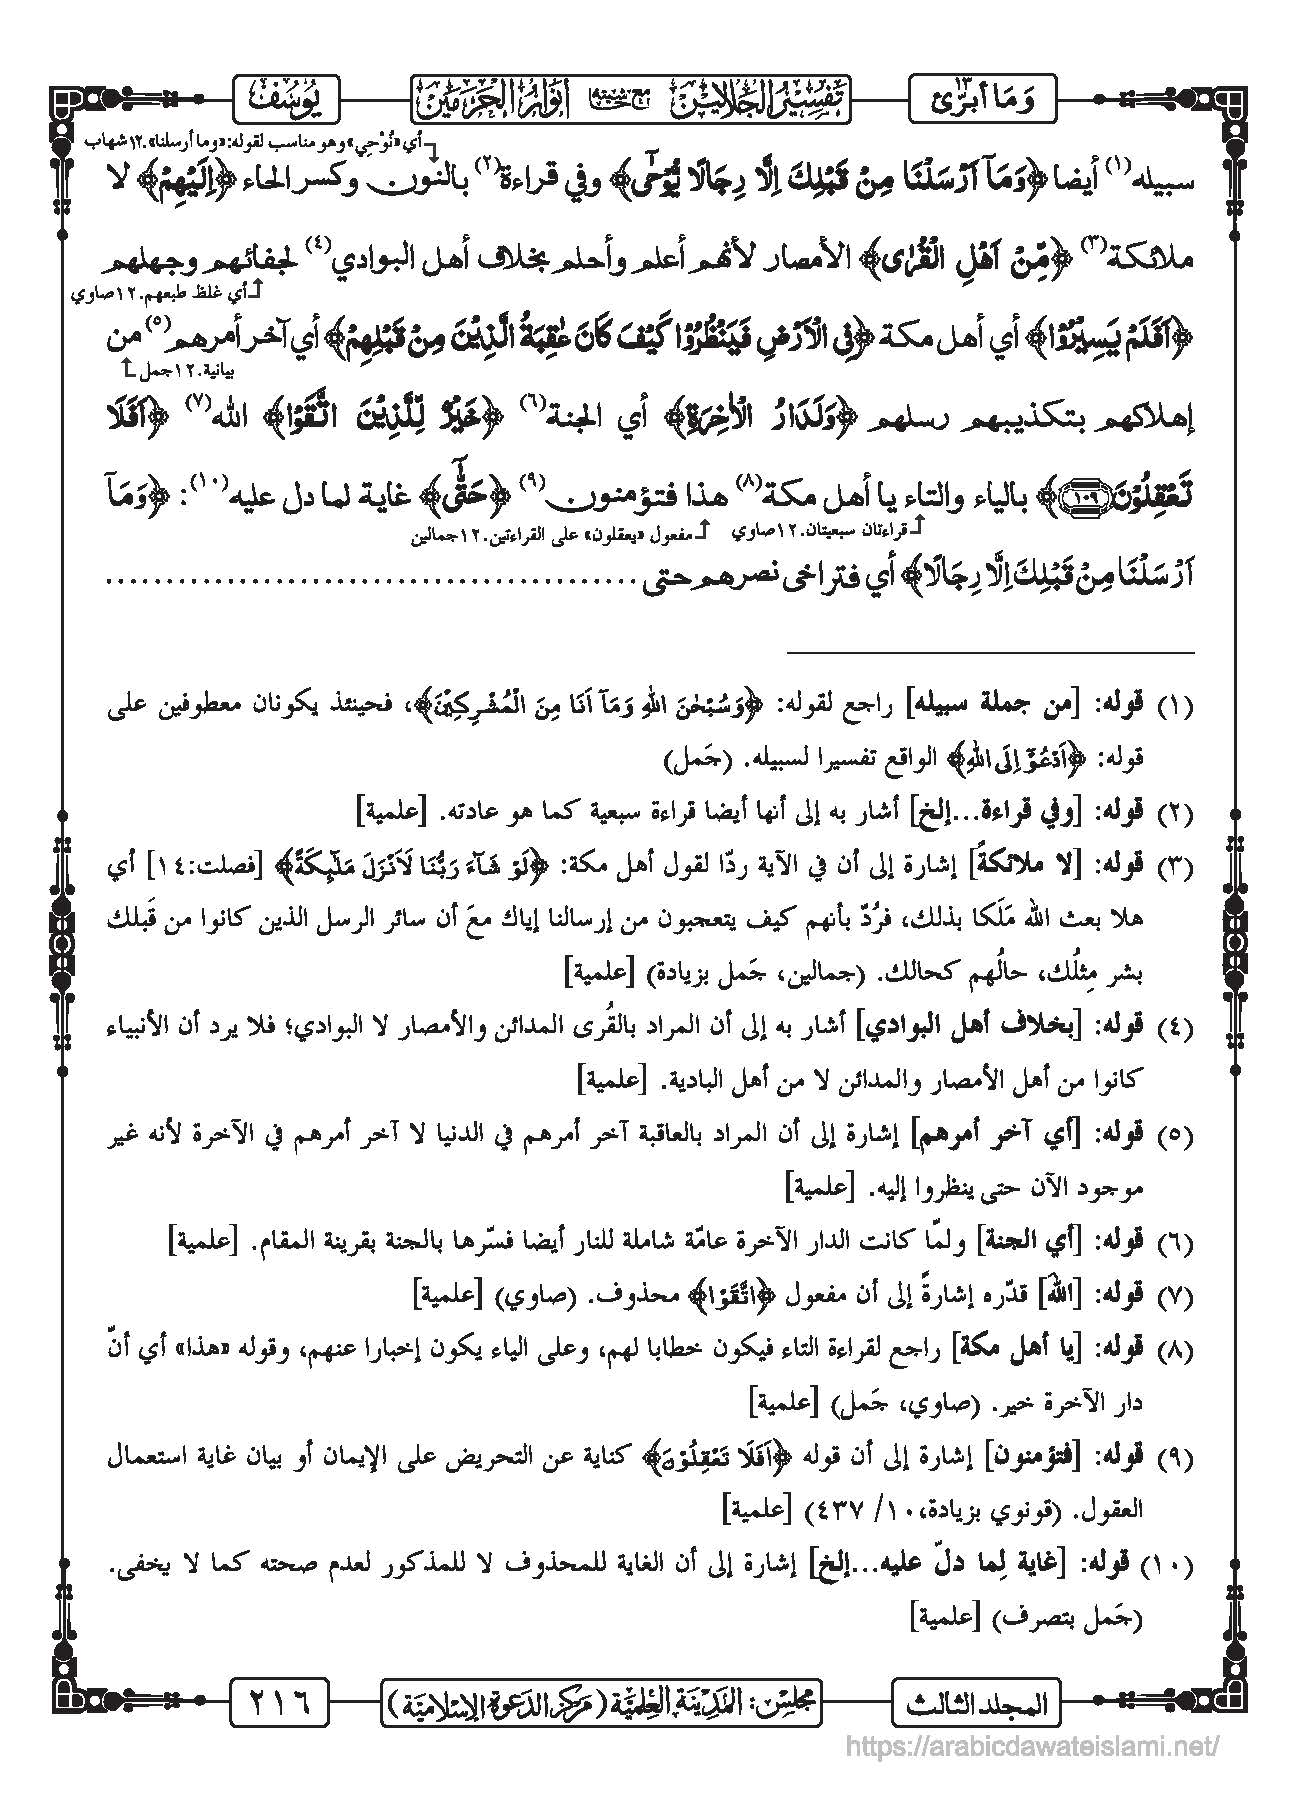 وَمَا أبرّئ ١٣
تفسير الجلالين مع حاشيته أنوار الحرمين
يُوسُف
أي «نُوْحِي» وهو مناسب لقوله: «وما أرسلنا». ١٢ شهاب
سبيله(١) أيضا ﴿وَمَآ اَرْسَلْنَا مِنْ قَبْلِكَ اِلَّا رِجَالًا يُّوْحٰٓى﴾ وفي قراءة(٢) بالنون وكسر الحاء ﴿اِلَيْهِمْ﴾ لا
ملائكة(٣) ﴿مِّنْ اَهْلِ الْقُرٰى﴾ الأمصار لأنهم أعلم وأحلم بخلاف أهل البوادي(٤) لجفائهم وجهلهم
أي غلظ طبعهم. ١٢ صاوي
﴿اَفَلَمْ يَسِيْرُوْا﴾ أي أهل مكة ﴿فِي الْاَرْضِ فَيَنْظُرُوْا كَيْفَ كَانَ عٰقِبَةُ الَّذِيْنَ مِنْ قَبْلِهِمْ﴾ أي آخر أمرهم(٥) من
بيانية. ١٢ جمل
إهلاكهم بتكذيبهم رسلهم ﴿وَلَدَارُ الْاٰخِرَةِ﴾ أي الجنة(٦) ﴿خَيْرٌ لِّلَّذِيْنَ اتَّقَوْا﴾ الله(٧) ﴿اَفَلَا
تَعْقِلُوْنَ ١٠٩﴾ بالياء والتاء يا أهل مكة(٨) هذا فتؤمنون(٩) ﴿حَتّٰٓى﴾ غاية لما دل عليه(١٠): ﴿وَمَآ
قراءتان سبعيتان. ١٢ صاوي
مفعول «يعقلون» على القراءتين. ١٢ جمالين
اَرْسَلْنَا مِنْ قَبْلِكَ اِلَّا رِجَالًا﴾ أي فتراخى نصرهم حتى ..........................................
(١) قوله: [من جملة سبيله] راجع لقوله: ﴿وَسُبْحٰنَ اللهِ وَمَآ اَنَا مِنَ الْمُشْرِكِيْنَ﴾، فحينئذ يكونان معطوفين على
قوله: ﴿اَدْعُوْٓ اِلَى اللهِ﴾ الواقع تفسيرا لسبيله. (جَمل)
(٢) قوله: [وفي قراءة...إلخ] أشار به إلى أنها أيضا قراءة سبعية كما هو عادته. [علمية]
(٣) قوله: [لا ملائكةً] إشارة إلى أن في الآية ردّا لقول أهل مكة: ﴿لَوْ شَآءَ رَبُّنَا لَاَنْزَلَ مَلٰٓىِٕكَةً﴾ [فصلت:١٤] أي
هلا بعث الله مَلَكا بذلك، فرُدّ بأنهم كيف يتعجبون من إرسالنا إياك معَ أن سائر الرسل الذين كانوا من قَبلك
بشر مِثلُك، حالُهم كحالك. (جمالين، جَمل بزيادة) [علمية]
(٤) قوله: [بخلاف أهل البوادي] أشار به إلى أن المراد بالقُرى المدائن والأمصار لا البوادي؛ فلا يرد أن الأنبياء
كانوا من أهل الأمصار والمدائن لا من أهل البادية. [علمية]
(٥) قوله: [أي آخر أمرهم] إشارة إلى أن المراد بالعاقبة آخر أمرهم في الدنيا لا آخر أمرهم في الآخرة لأنه غير
موجود الآن حتى ينظروا إليه. [علمية]
(٦) قوله: [أي الجنة] ولمّا كانت الدار الآخرة عامّة شاملة للنار أيضا فسّرها بالجنة بقرينة المقام. [علمية]
(٧) قوله: [اللهَ] قدّره إشارةً إلى أن مفعول ﴿اتَّقَوْا﴾ محذوف. (صاوي) [علمية]
(٨) قوله: [يا أهل مكة] راجع لقراءة التاء فيكون خطابا لهم، وعلى الياء يكون إخبارا عنهم، وقوله «هذا» أي أنّ
دار الآخرة خير. (صاوي، جَمل) [علمية]
(٩) قوله: [فتؤمنون] إشارة إلى أن قوله ﴿اَفَلَا تَعْقِلُوْنَ﴾ كناية عن التحريض على الإيمان أو بيان غاية استعمال
العقول. (قونوي بزيادة،١٠/ ٤٣٧) [علمية]
(١٠) قوله: [غاية لِما دلّ عليه...إلخ] إشارة إلى أن الغاية للمحذوف لا للمذكور لعدم صحته كما لا يخفى.
(جَمل بتصرف) [علمية]
المجلد الثالث
مجلس: المدينة العلمية (مركز الدعوة الإسلامية)
٢١٦
https://arabicdawateislami.net/